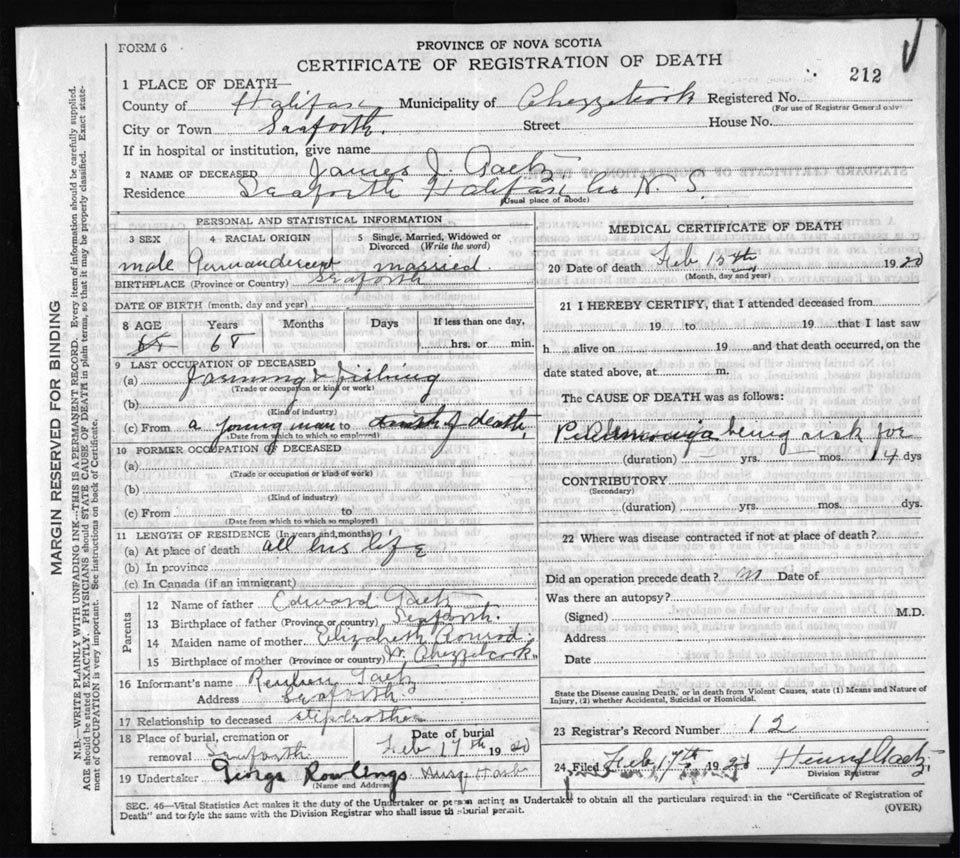 FORM 6
PROVINCE OF NOVA SCOTIA
CERTIFICATE OF REGISTRATION OF DEATH
212
1 PLACE OF DEATH—
County of Halifax Municipality of Chezzetcook Registered No.
(For use of Registrar General only)
City or Town Seaforth. Street House No.
If in hospital or institution, give name
2 NAME OF DECEASED James J. Gaetz
Residence Seaforth Halifax Co N. S.
(Usual place of abode)
PERSONAL AND STATISTICAL INFORMATION
3 SEX 4 RACIAL ORIGIN 5 Single, Married, Widowed or Divorced (Write the word)
male German descent married.
BIRTHPLACE (Province or Country) Seaforth
DATE OF BIRTH (month, day and year)
8 AGE Years Months Days If less than one day,
68 hrs. or min.
9 LAST OCCUPATION OF DECEASED
(a) farming & fishing
(Trade or occupation or kind or work)
(b)
(Kind of industry)
(c) From a young man to death,
(Date from which to which so employed)
10 FORMER OCCUPATION OF DECEASED
(a)
(Trade or occupation or kind of work)
(b)
(Kind of industry)
(c) From to
(Date from which to which so employed)
11 LENGTH OF RESIDENCE (In years and months)
(a) At place of death all his life
(b) In province
(c) In Canada (if an immigrant)
Parents
12 Name of father Edward Gaetz
13 Birthplace of father (Province or country) Seaforth.
14 Maiden name of mother Elizabeth Conrod.
15 Birthplace of mother (Province or country) W. Chezzetcook
16 Informant's name Reuben Gaetz
Address Seaforth
17 Relationship to deceased stepbrother
18 Place of burial, cremation or removal Seaforth Date of burial Feb 17th 1920
19 Undertaker George Rowlings
(Name and Address)
MEDICAL CERTIFICATE OF DEATH
20 Date of death Feb 15th 1920
(Month, day and year)
21 I HEREBY CERTIFY, that I attended deceased from
19 to 19 that I last saw
h alive on 19 and that death occurred, on the
date stated above, at m.
The CAUSE OF DEATH was as follows:
being sick for
(duration) yrs. mos. 14 dys
CONTRIBUTORY
(Secondary)
(duration) yrs. mos. dys.
22 Where was disease contracted if not at place of death?
Did an operation precede death? Date of
Was there an autopsy?
(Signed) M.D.
Address
Date
State the Disease causing Death, or in death from Violent Causes, state (1) Means and Nature of
Injury, (2) whether Accidental, Suicidal or Homicidal.
23 Registrar's Record Number 12
24 Filed Feb 17th 1920 Henry Gaetz,
Division Registrar
SEC. 46—Vital Statistics Act makes it the duty of the Undertaker or person acting as Undertaker to obtain all the particulars required in the "Certificate of Registration of
Death" and to fyle the same with the Division Registrar who shall issue the burial permit.
(OVER)
MARGIN RESERVED FOR BINDING
N.B.—WRITE PLAINLY WITH UNFADING INK—THIS IS A PERMANENT RECORD. Every item of information should be carefully supplied.
AGE should be stated EXACTLY. PHYSICIANS should STATE CAUSE OF DEATH in plain terms, so that it may be properly classified. Exact state-
ment of OCCUPATION is very important. See instructions on back of Certificate.